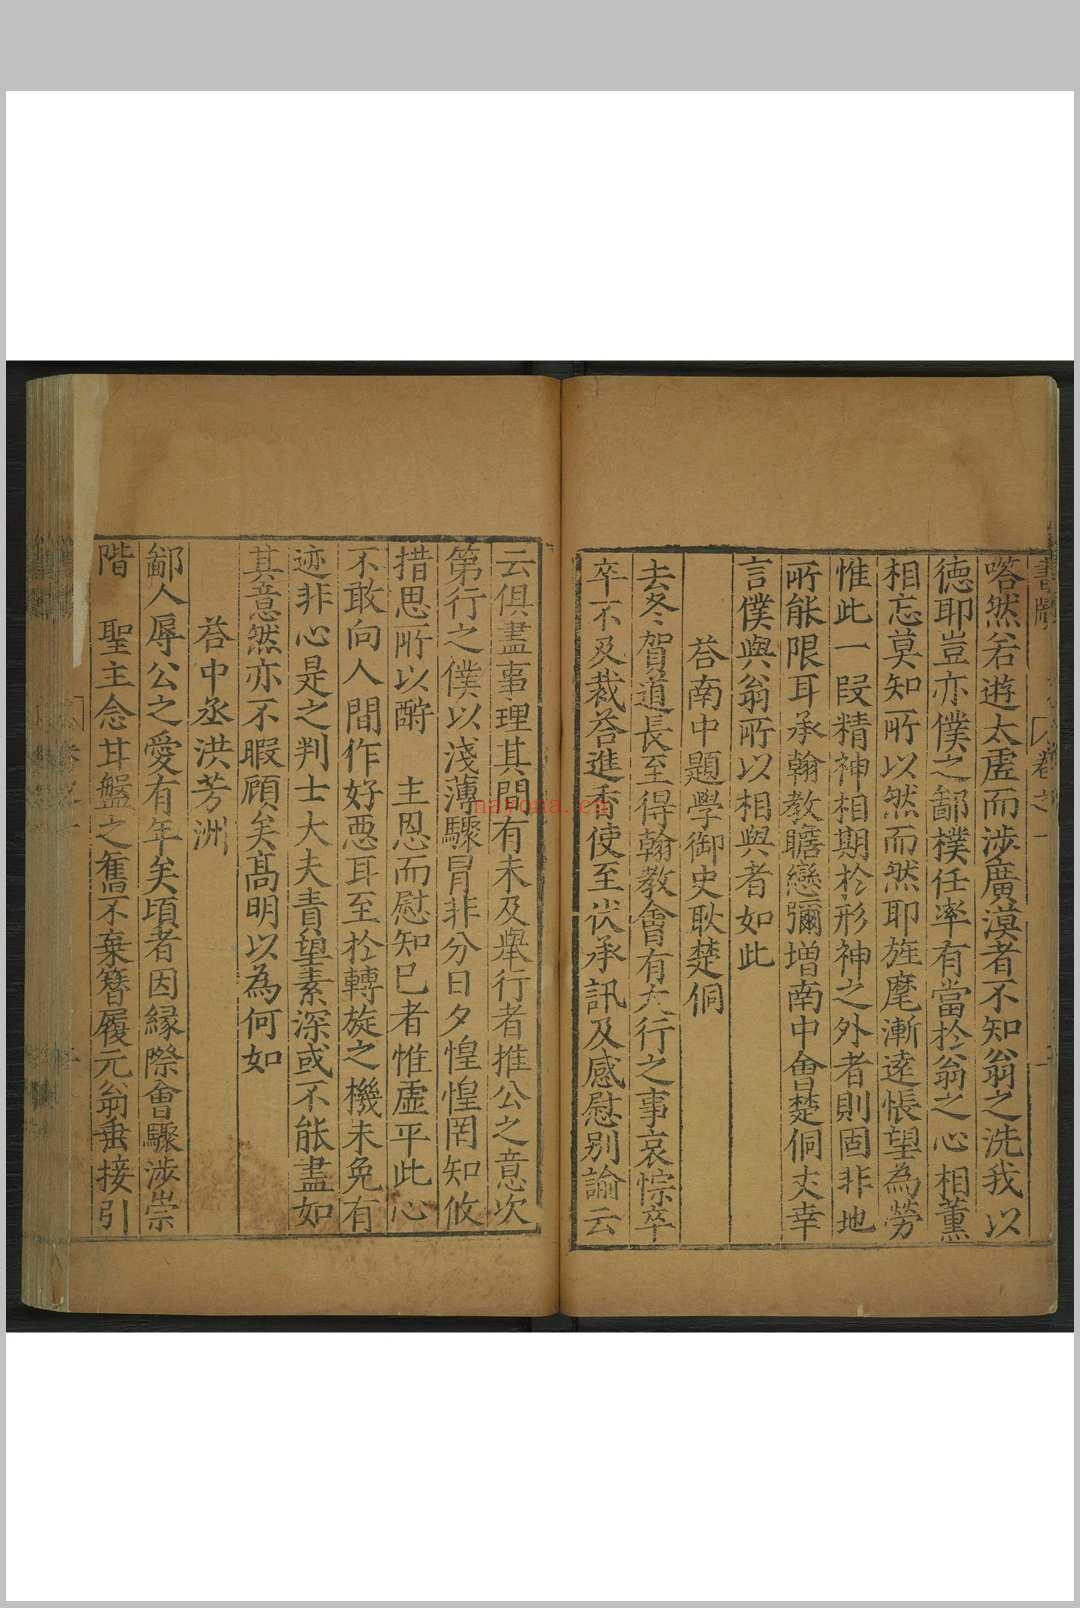 嗒然若遊太虛而涉廣漠者不知翁之洗我以
徳耶豈亦僕之鄙樸任率有當扵翁之心相薰
相忘莫知所以然而然耶旌麾漸逺悵望為勞
惟此一叚精神相期扵形神之外者則固非地
所能限耳承翰教瞻戀彌增南中會楚侗丈幸
言僕與翁所以相與者如此
荅南中題學御史耿楚侗
去冬賀道長至得翰教會有大行之事哀悰卒
卒不及裁荅進香使至伏承訊及感慰别諭云
云俱盡事理其間有未及舉行者推公之意次
第行之僕以淺薄驟冐非分日夕惶惶罔知攸
措思所以酧 主恩而慰知巳者惟虛平此心
不敢向人間作好惡耳至扵轉旋之機未免有
迹非心是之判士大夫責望素深或不能盡如
其意然亦不暇顧矣高明以為何如
荅中丞洪芳洲
鄙人辱公之愛有年矣頃者因縁際會驟涉崇
階 聖主念甘盤之舊不棄簪履元翁垂接引
書牘 卷之一
navona.cn